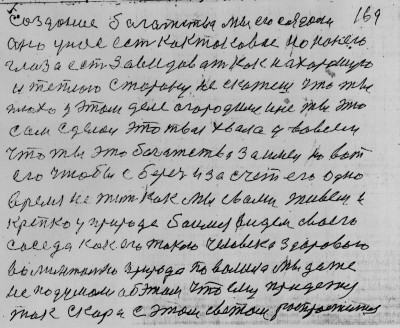 создоние богатства мы его создали 169
оно у нас есть как таковое но на него
глаза есть завидоват как на хорошую
и теплою сторону не скажеш что ты
плохо у этом деле огородился не ты это
сам сделал это твоя хвала у вовсем
что ты это богатства заимел но вот
его чтобы сберечь и за счет его одно
время не жит как мы с вами живем и
крепко у природе боимся видем своего
соседа как его такого человека здорового
природа по волика мы даже
не подумали об этом что ему придется
так скора с этом светом роспроститися